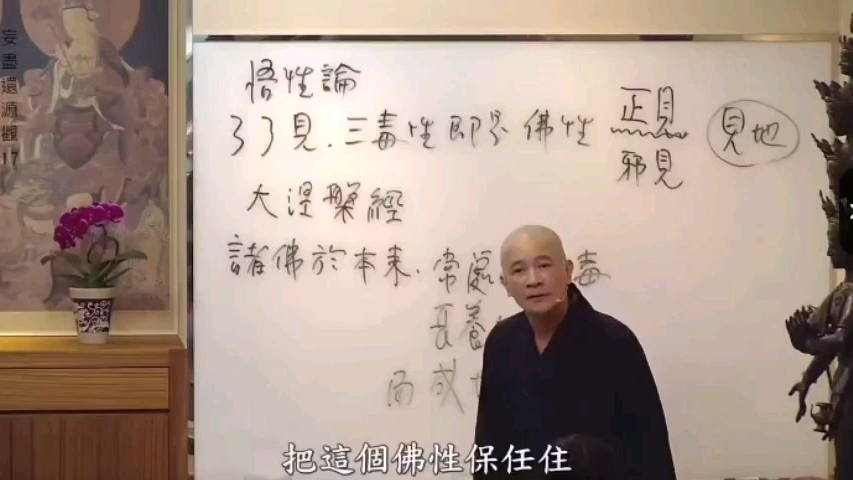 妄盡還源觀17
悟性論
了了見.三毒性即是佛性
正見
邪見
見地
大涅槃經
諸佛於本來.常處 毒
長養
而成
把這個佛性保任住